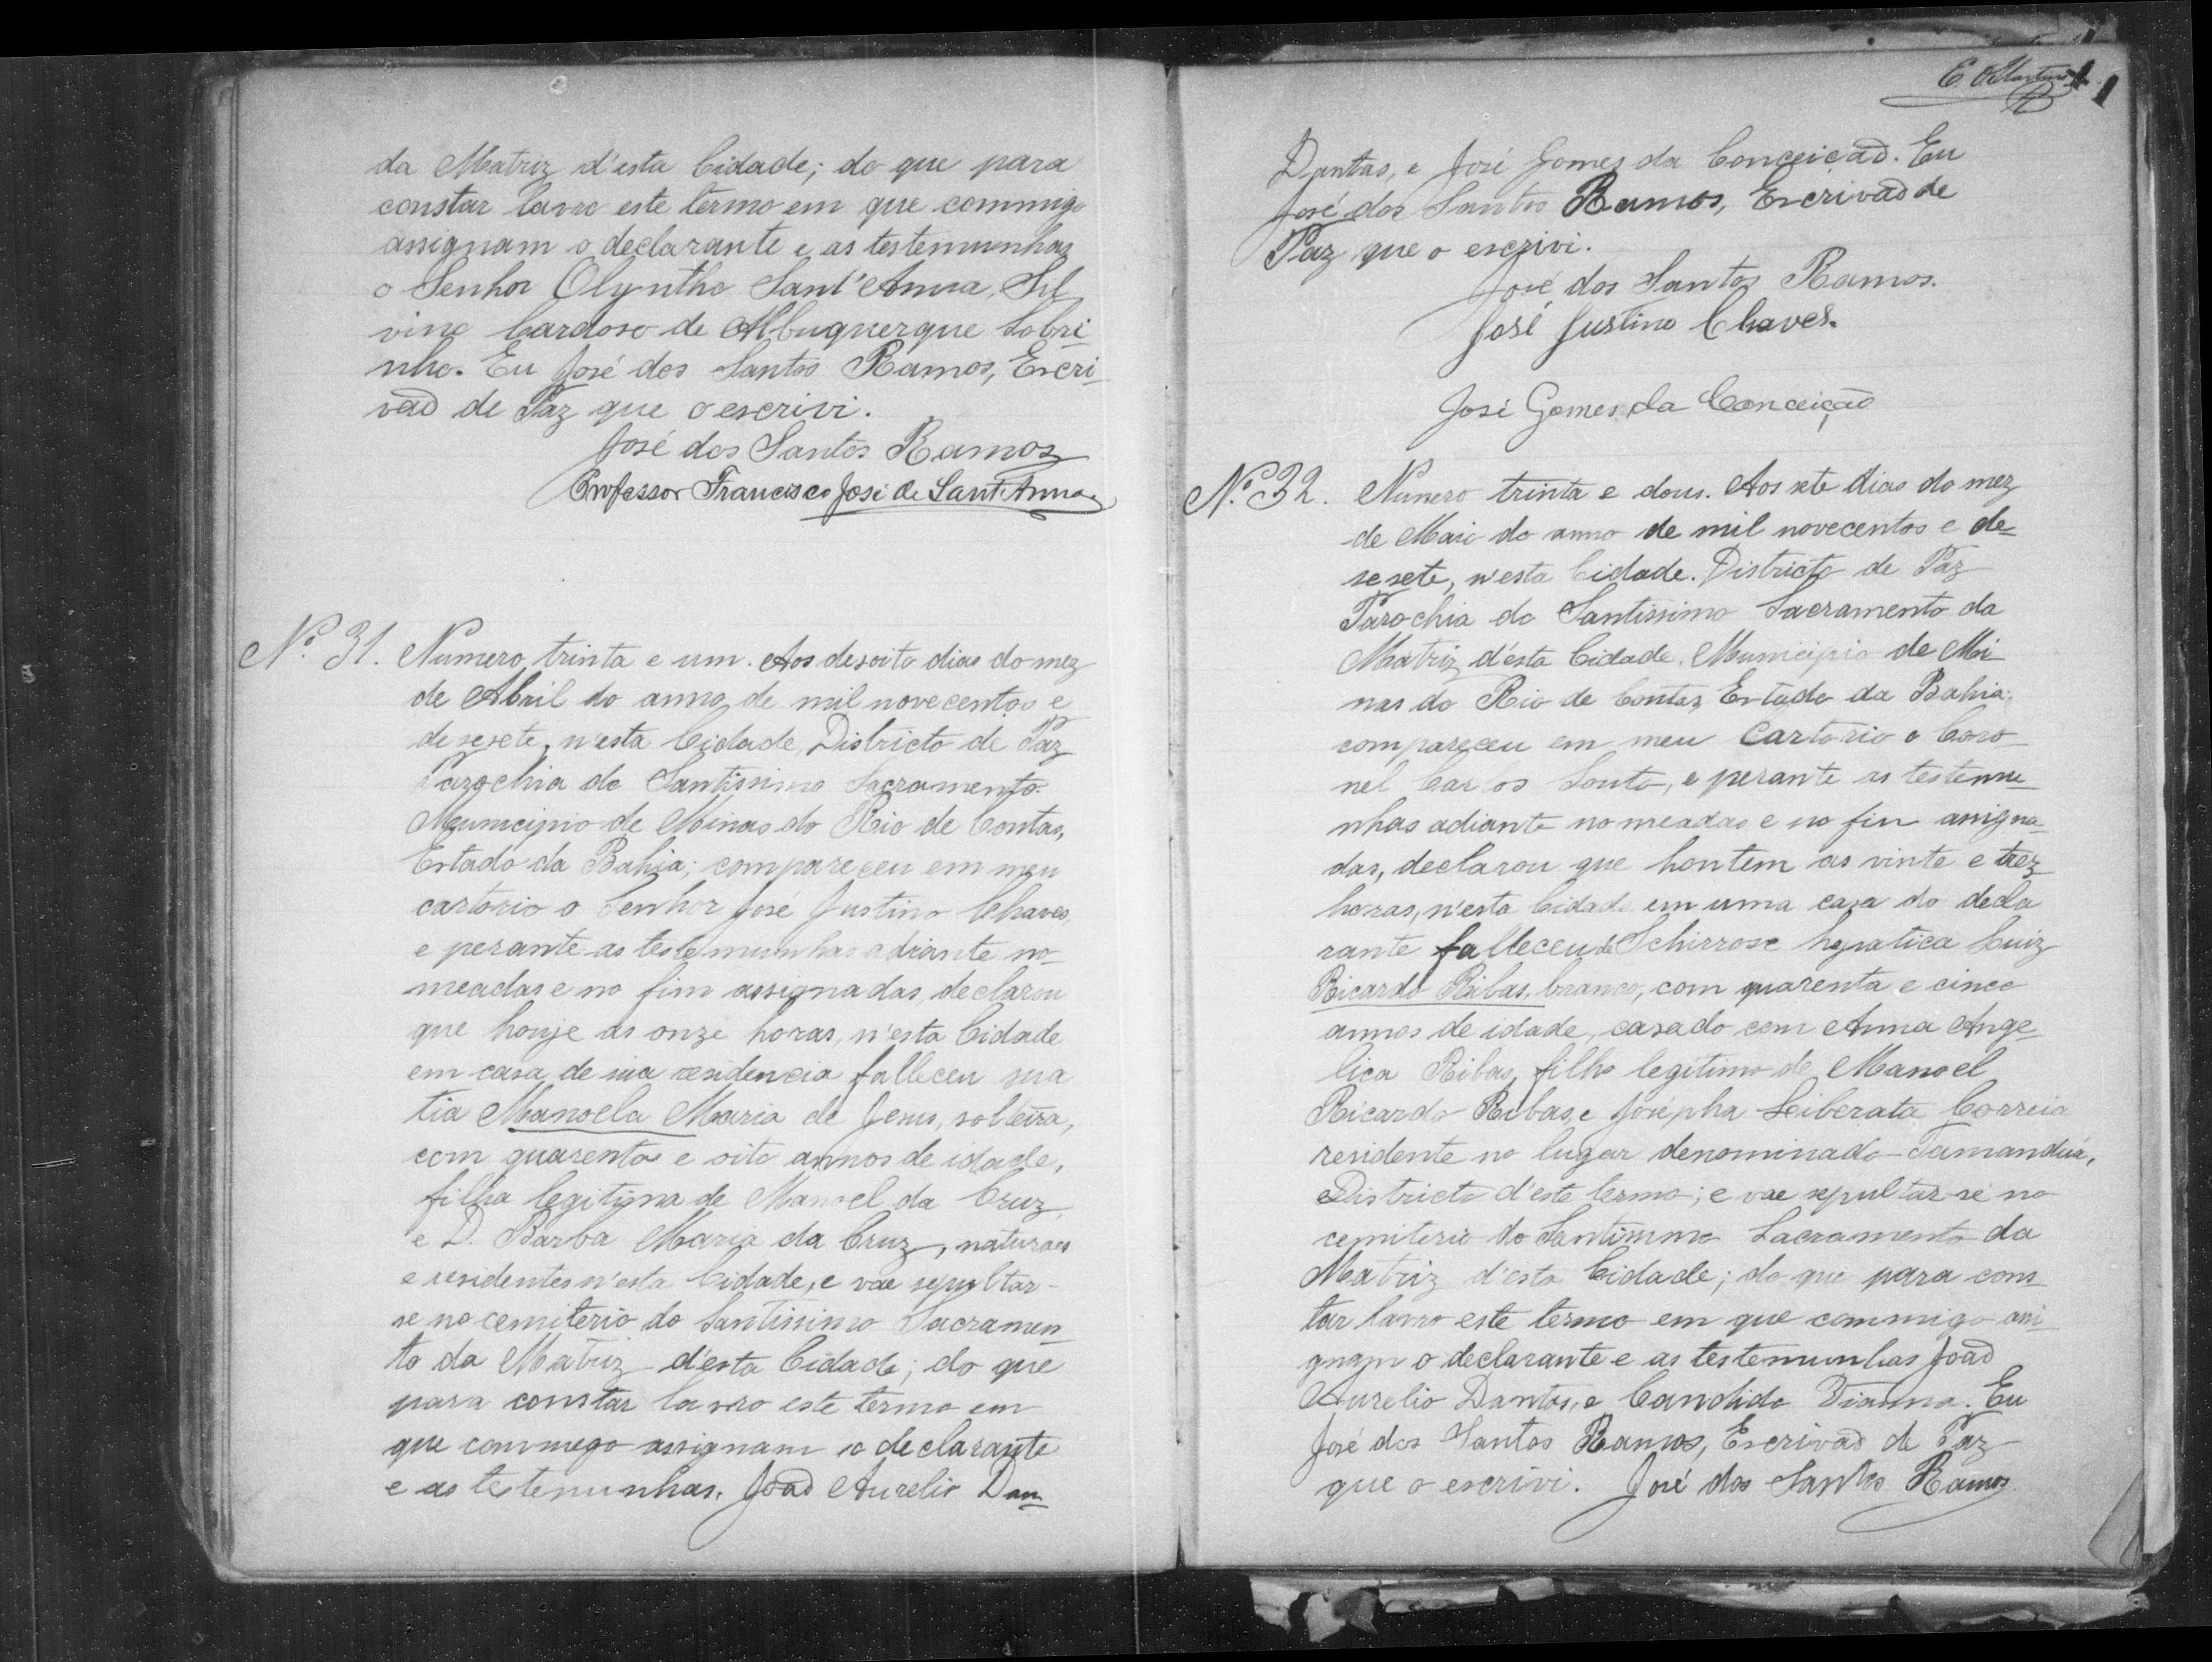 da Matriz d'esta Cidade; do que para
constar lavro este termo em que commigo
assignam o declarante e as testemunhas
o Senhor Olyntho Sant'Anna, Sil
vino Cardoso de Albuquerque Sobri-
nho. Eu José dos Santos Ramos, Escri-
vaõ de Paz que o escrivi.
José dos Santos Ramos
Professor Francisco José de Sant'Anna
Nº 31. Numero trinta e um. Aos desoito dias do mez
de Abril do anno de mil novecentos e
desesete, n'esta Cidade, Districto de Paz
Parochia do Santissimo Sacramento.
Municipio de Minas do Rio de Contas,
Estado da Bahia; compareceu em meu
cartorio o Senhor José Justino Chaves,
e perante as testemunhas adiante no-
meadas e no fim assignadas, declarou
que honje as onze horas, n'esta Cidade
em casa de sua residencia falleceu sua
tia Manoela Maria de Jesus, solteira,
com quarentas e oito annos de idade,
filha legitima de Manoel da Cruz,
e D. Barba Maria da Cruz, naturaes
e residentes n'esta Cidade, e vae sepultar-
se no cemiterio do Santissimo Sacramen-
to da Matriz d'esta Cidade; do que
para constar lavro este termo em
que commego assignam o declarante
e as testemunhas, Joaõ Aurelio Dan-
E O Martins
Dantas, e José Gomes da Conceicaõ. Eu
José dos Santos Ramos, Escrivaõ de
Paz que o escrivi.
José dos Santos Ramos.
José Justino Chaves.
José Gomes da Conceição
Nº 32. Numero trinta e dous. Aos sete dias do mez
de Maio do anno de mil novecentos e de-
sesete, n'esta Cidade. Districto de Paz
Parochia do Santissimo Sacramento da
Matriz d'esta Cidade. Municipio de Mi
nas do Rio de Contas Estado da Bahia;
compareceu em meu Cartorio o Coro-
nel Carlos Souto, e perante as testemu-
nhas adiante nomeadas e no fim assigna-
das, declarou que hontem as vinte e trez
horas, n'esta Cidade em uma casa do decla
rante falleceu de Schirrose hepatica Luiz
Ricardo Ribas, branco, com quarenta e cinco
annos de idade, casado com Anna Ange-
lica Ribas, filho legitimo de Manoel
Ricardo Ribas, e Josépha Leiberata Correia
residente no lugar denominado Tamanduá,
Districto d'este termo; e vae sepultar-se no
cemiterio do Santissimo Sacramento da
Matriz d'esta Cidade; do que para cons
tar lavro este termo em que commigo assi-
gnam o declarante e as testemunhas Joaõ
Aurelio Dantas, e Candido Vianna. Eu
José dos Santos Ramos, Escrivaõ de Paz
que o escrivi. José dos Santos Ramos